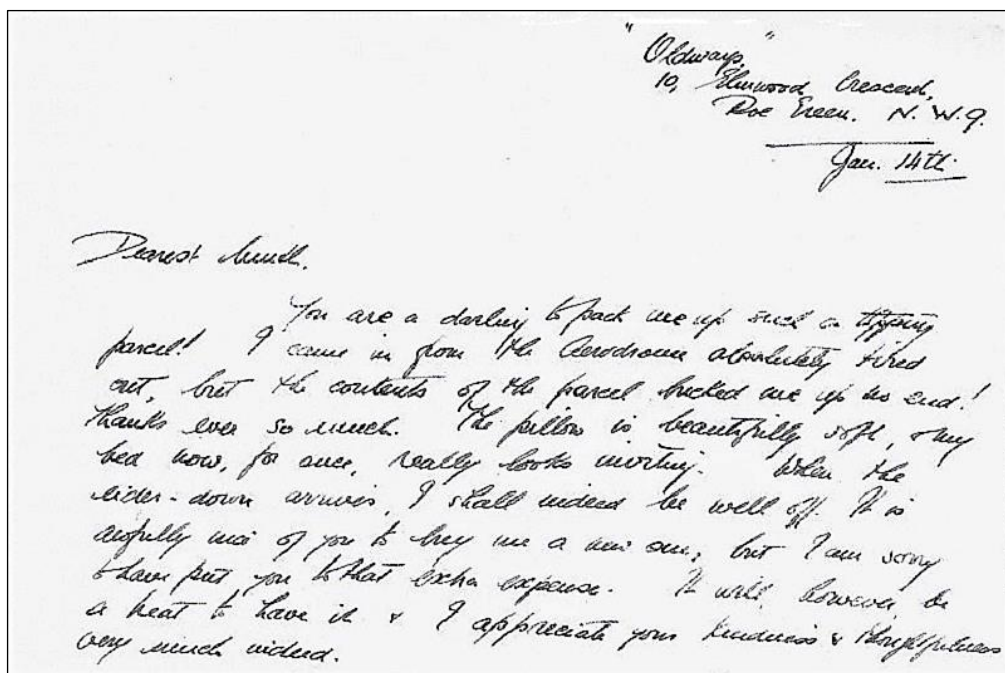 "Oldways"
10, Elmwood Crescent,
Roe Green. N.W.9.
Jan. 14th.
Dearest
You are a darling to pack me up such a ripping
parcel! I came in from the Aerodrome absolutely tired
out, but the contents of the parcel bucked me up no end!
Thanks ever so much. The pillow is beautifully soft, & my
bed now, for once, really looks inviting. When the
eider-down arrives, I shall indeed be well off. It is
awfully nice of you to buy me a new one, but I am sorry
to have put you to that extra expense. It will, however, be
a treat to have it & I appreciate your kindness & thoughtfulness
very much indeed.